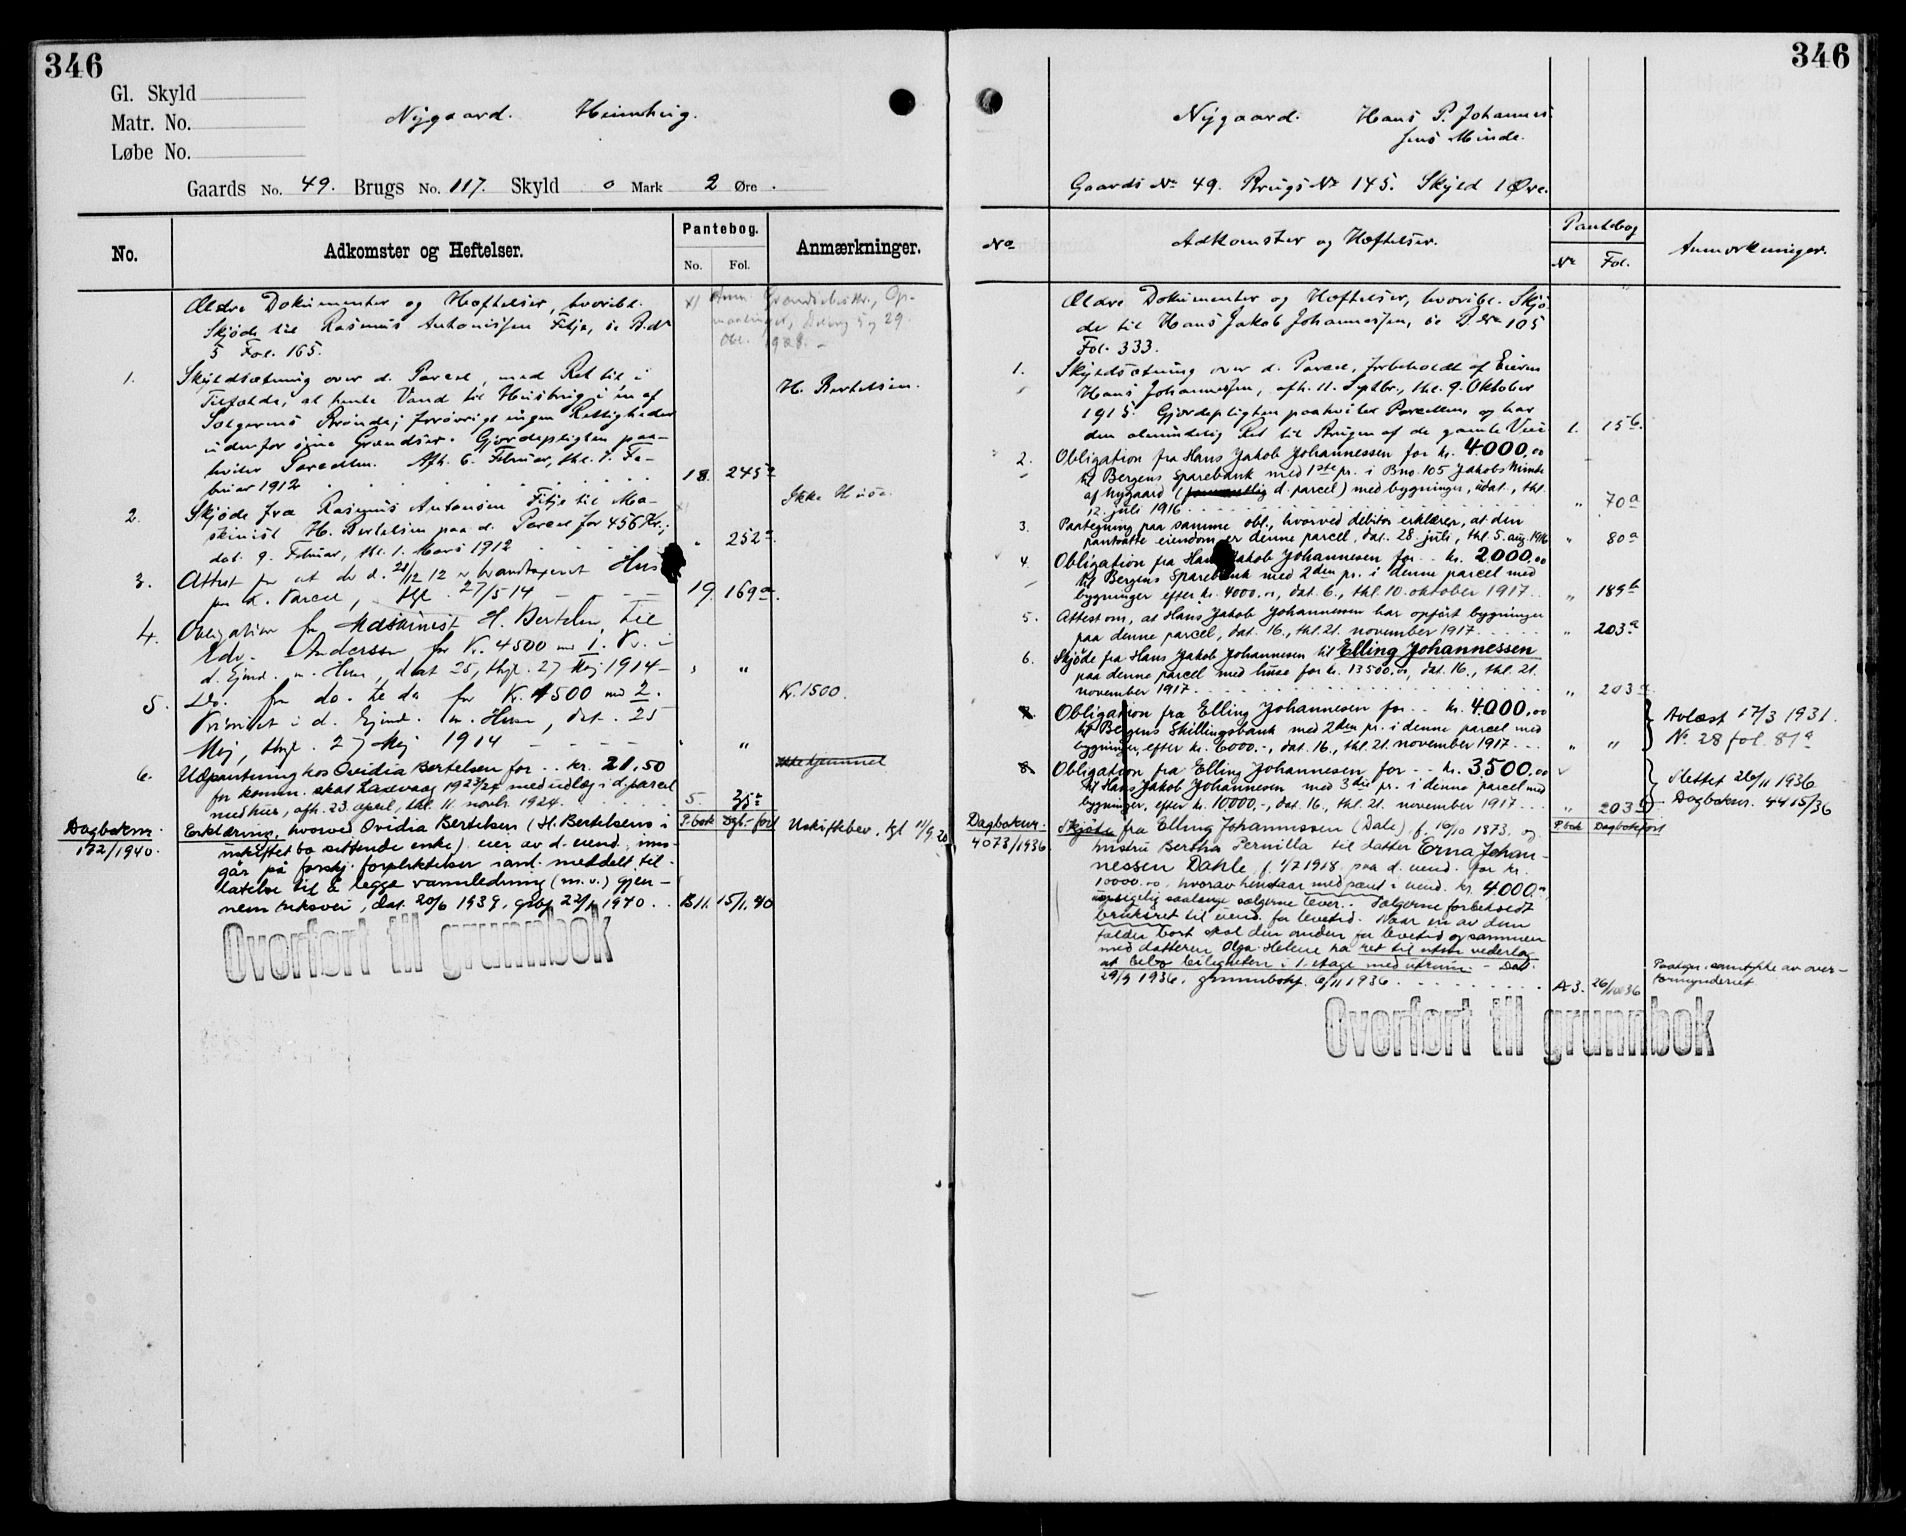 346
Gl. Skyld
Matr. No.
Løbe No.
Nygaard. Heimhug.
Gaards No. 49. Brugs No. 117. Skyld 0 Mark 2 Øre.
No. Adkomster og Heftelser. Pantebog. No. Fol. Anmærkninger.
Ældre Dokumenter og Hæftelser, hvoribl.
Skjøde til Rasmus Antonissen Fitje, se B.No
5 Fol. 165.
1. Skyldsætning over d. Parcel, med Ret til i
Tilfælde, at hente Vand til Husbrug i en af
Sælgerens Brønde; forøvrigt ingen Rettigheder
udenfor sine Grændser. Gjerdepligten paa-
hviler Parcellen. Afh. 6. Februar, thl. 7. Fe-
bruar 1912 18. 245 a
H. Bertelsen.
2. Skjøde fra Rasmus Antonsen Fitje til Ma-
skinist H. Bertelsen paa d. Parcel for 456 Kr.;
dat. 9. Februar, thl. 1. Mars 1912 " 252 a
Ikke Huse.
3. Attest for at der d. 28/12 12 er brandtaxeret Hus
paa d. Parcel, thgl. 27/5 14 19. 169 a
4. Obligation fra Maskinist H. Bertelsen til
Edv. Andersen for Kr. 4500 med 1. Pr. i
d. Ejend. m. Huse, dat 25, thgl. 27 Mej 1914 " "
5. Do. fra do. til do for Kr. 1500 med 2.
Prioritet i d. Ejend. m. Huse, dat. 25
Mej, thgl. 27 Mej 1914 " "
Kr. 1500.
6. Udpantning hos Ovidia Bertelsen for .. kr. 21.50
for komm. skat Laksevaag 1923/24 med udlæg i d. parcel
med hus, afh. 23. april, thl. 11. novbr. 1924. 5. 35 a
Ikke hjemmel
P.bok Dgb.-ført
Dagboknr. 172/1940. Erklæring, hvorved Ovidia Bertelsen (H. Bertelsens i
uskiftet bo sittende enke) eier av d. eiend., inn-
går på forskj. forpliktelser i anl. meddelt til-
latelse til å legge vannledning (m.v.) gjen-
nem riksvei, dat. 20/6 1939, grbf. 22/1 1940. B 11. 15/1. 40
Uskiftebev. tgl 11/9 20
Overført til grunnbok
346
Nygaard. Hans P. Johannes-
sens Minde.
Gaards No 49. Brugs No 145. Skyld 1 Øre.
No Adkomster og Hæftelser. Pantebog No Fol. Anmærkninger.
Ældre Dokumenter og Hæftelser, hvoribl. Skjø-
de til Hans Jakob Johannessen, se B.No 105
Fol. 333.
1. Skyldsætning over d. Parcel, forbeholdt af Eieren
Hans Johannessen, afh. 11. Septbr., thl. 9. Oktober
1915. Gjerdepligten paahviler Parcellen, og har
den almindelig Ret til Brugen af de gamle Veie 1. 156.
2. Obligation fra Hans Jakob Johannessen for kr. 4000.00
til Bergens Sparebank med 1ste pr. i Bno. 105 Jakobs Minde
af Nygaard (d. parcel) med bygninger, udat., thl.
12. juli 1916 " 70 a
3. Paategning paa samme obl., hvorved debitor erklærer, at den
pantsatte eiendom er denne parcel, dat. 28. juli, thl. 5. aug. 1916 " 80 a
4. Obligation fra Hans Jakob Johannesen for .. kr. 2000.00
til Bergens Sparebank med 2den pr. i denne parcel med
bygninger efter kr. 4000.00, dat. 6., thl. 10. oktober 1917 " 189 b
5. Attest om, at Hans Jakob Johannessen har opført bygninger
paa denne parcel, dat. 16., thl. 21. november 1917 " 203 a
6. Skjøde fra Hans Jakob Johannesen til Elling Johannessen
paa denne parcel med huse for kr. 13500.00, dat. 16., thl. 21.
november 1917 " 203 a
7. Obligation fra Elling Johannesen for .. kr. 4000.00
til Bergens Skillingsbank med 2den pr. i denne parcel med
bygninger, efter kr. 6000.-, dat. 16., thl. 21. november 1917 " "
Avlæst 17/3 1931.
N. 28 fol. 81 a
8. Obligation fra Elling Johannesen for .. kr. 3500.00
til Hans Jakob Johannesen med 3die pr. i denne parcel med
bygninger, efter kr. 10000.-, dat. 16., thl. 21. november 1917 " 203 b
Slettet 26/11 1936
Dagboknr. 4415/36
P.bok Dagbokført
Dagboknr. 4073/1936. Skjøte fra Elling Johannessen (Dale) f. 10/10 1873. og
hustru Bertha Pernilla til datter Erna Johan-
nessen Dahle, f. 1/7 1918. paa d. eiend. for kr.
10000.00, hvorav henstaar med pant i eiend. kr. 4000.-
uopsigelig saalenge sælgerne lever. Sælgerne forbeholdt
bruksret til eiend. for levetid. Naar en av dem
falder bort skal den anden for levetid og sammen
med datteren Olga Helene ha ret til uten vederlag
at bebo leiligheten i 1. etage med uterum. - Dat.
29/9 1936, grunnbokf. 6/11 1936 A 3. 26/10 36
Paategn. samtykke av over-
formynderiet
Overført til grunnbok